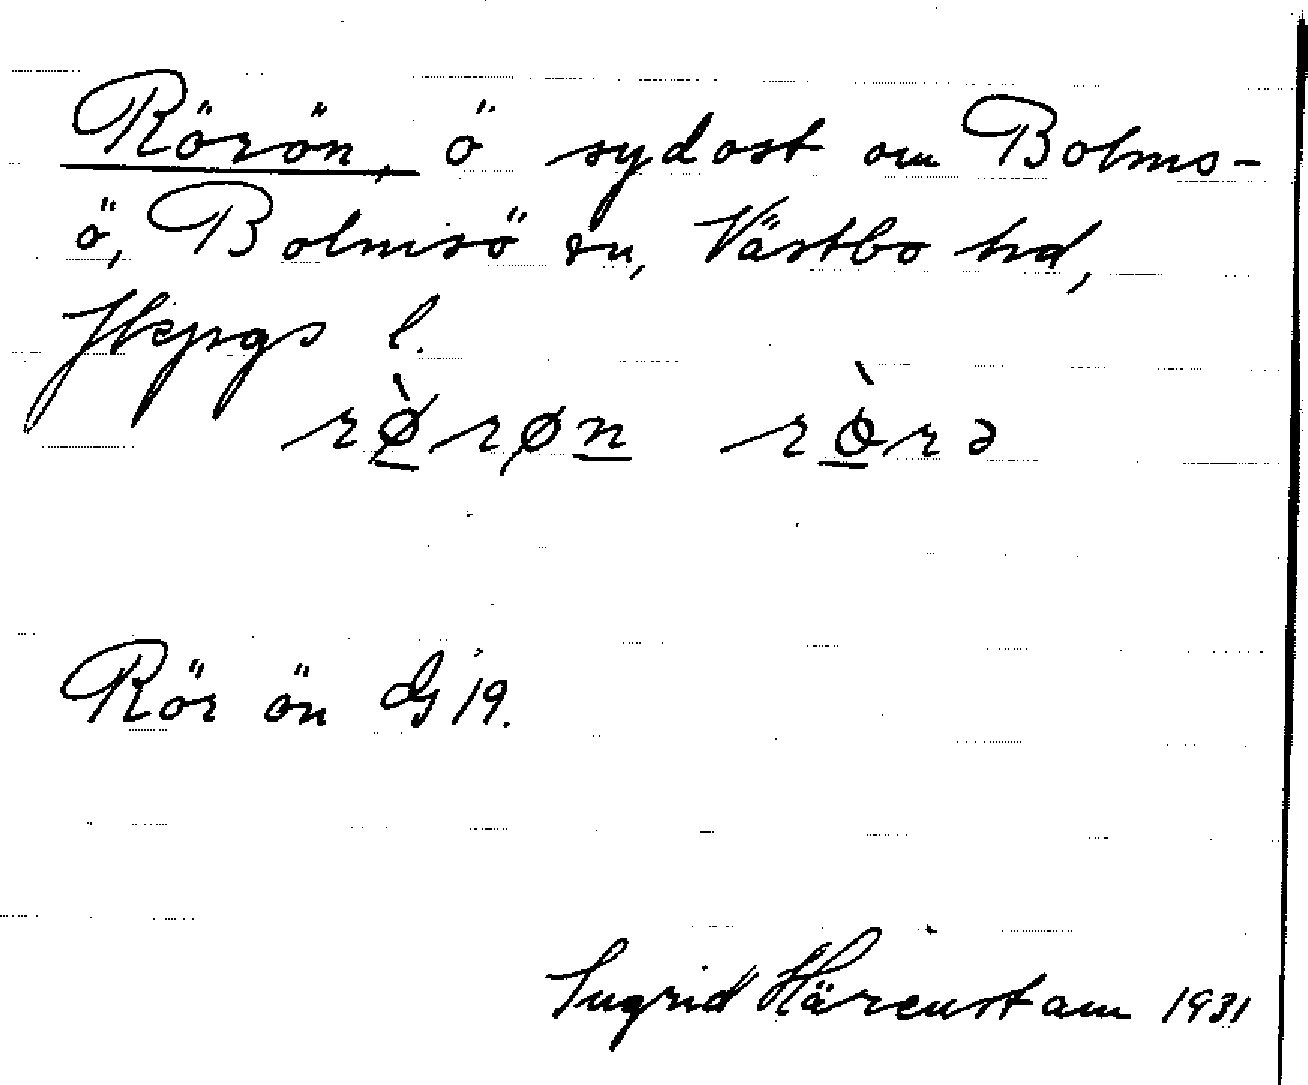 Rörön, ö sydost om Bolms-
ö, Bolmsö sn, Västbo hd,
Jkpgs l.
rø̀røn rø̀rə
Rör ön G 19.
Ingrid Härenstam 1931